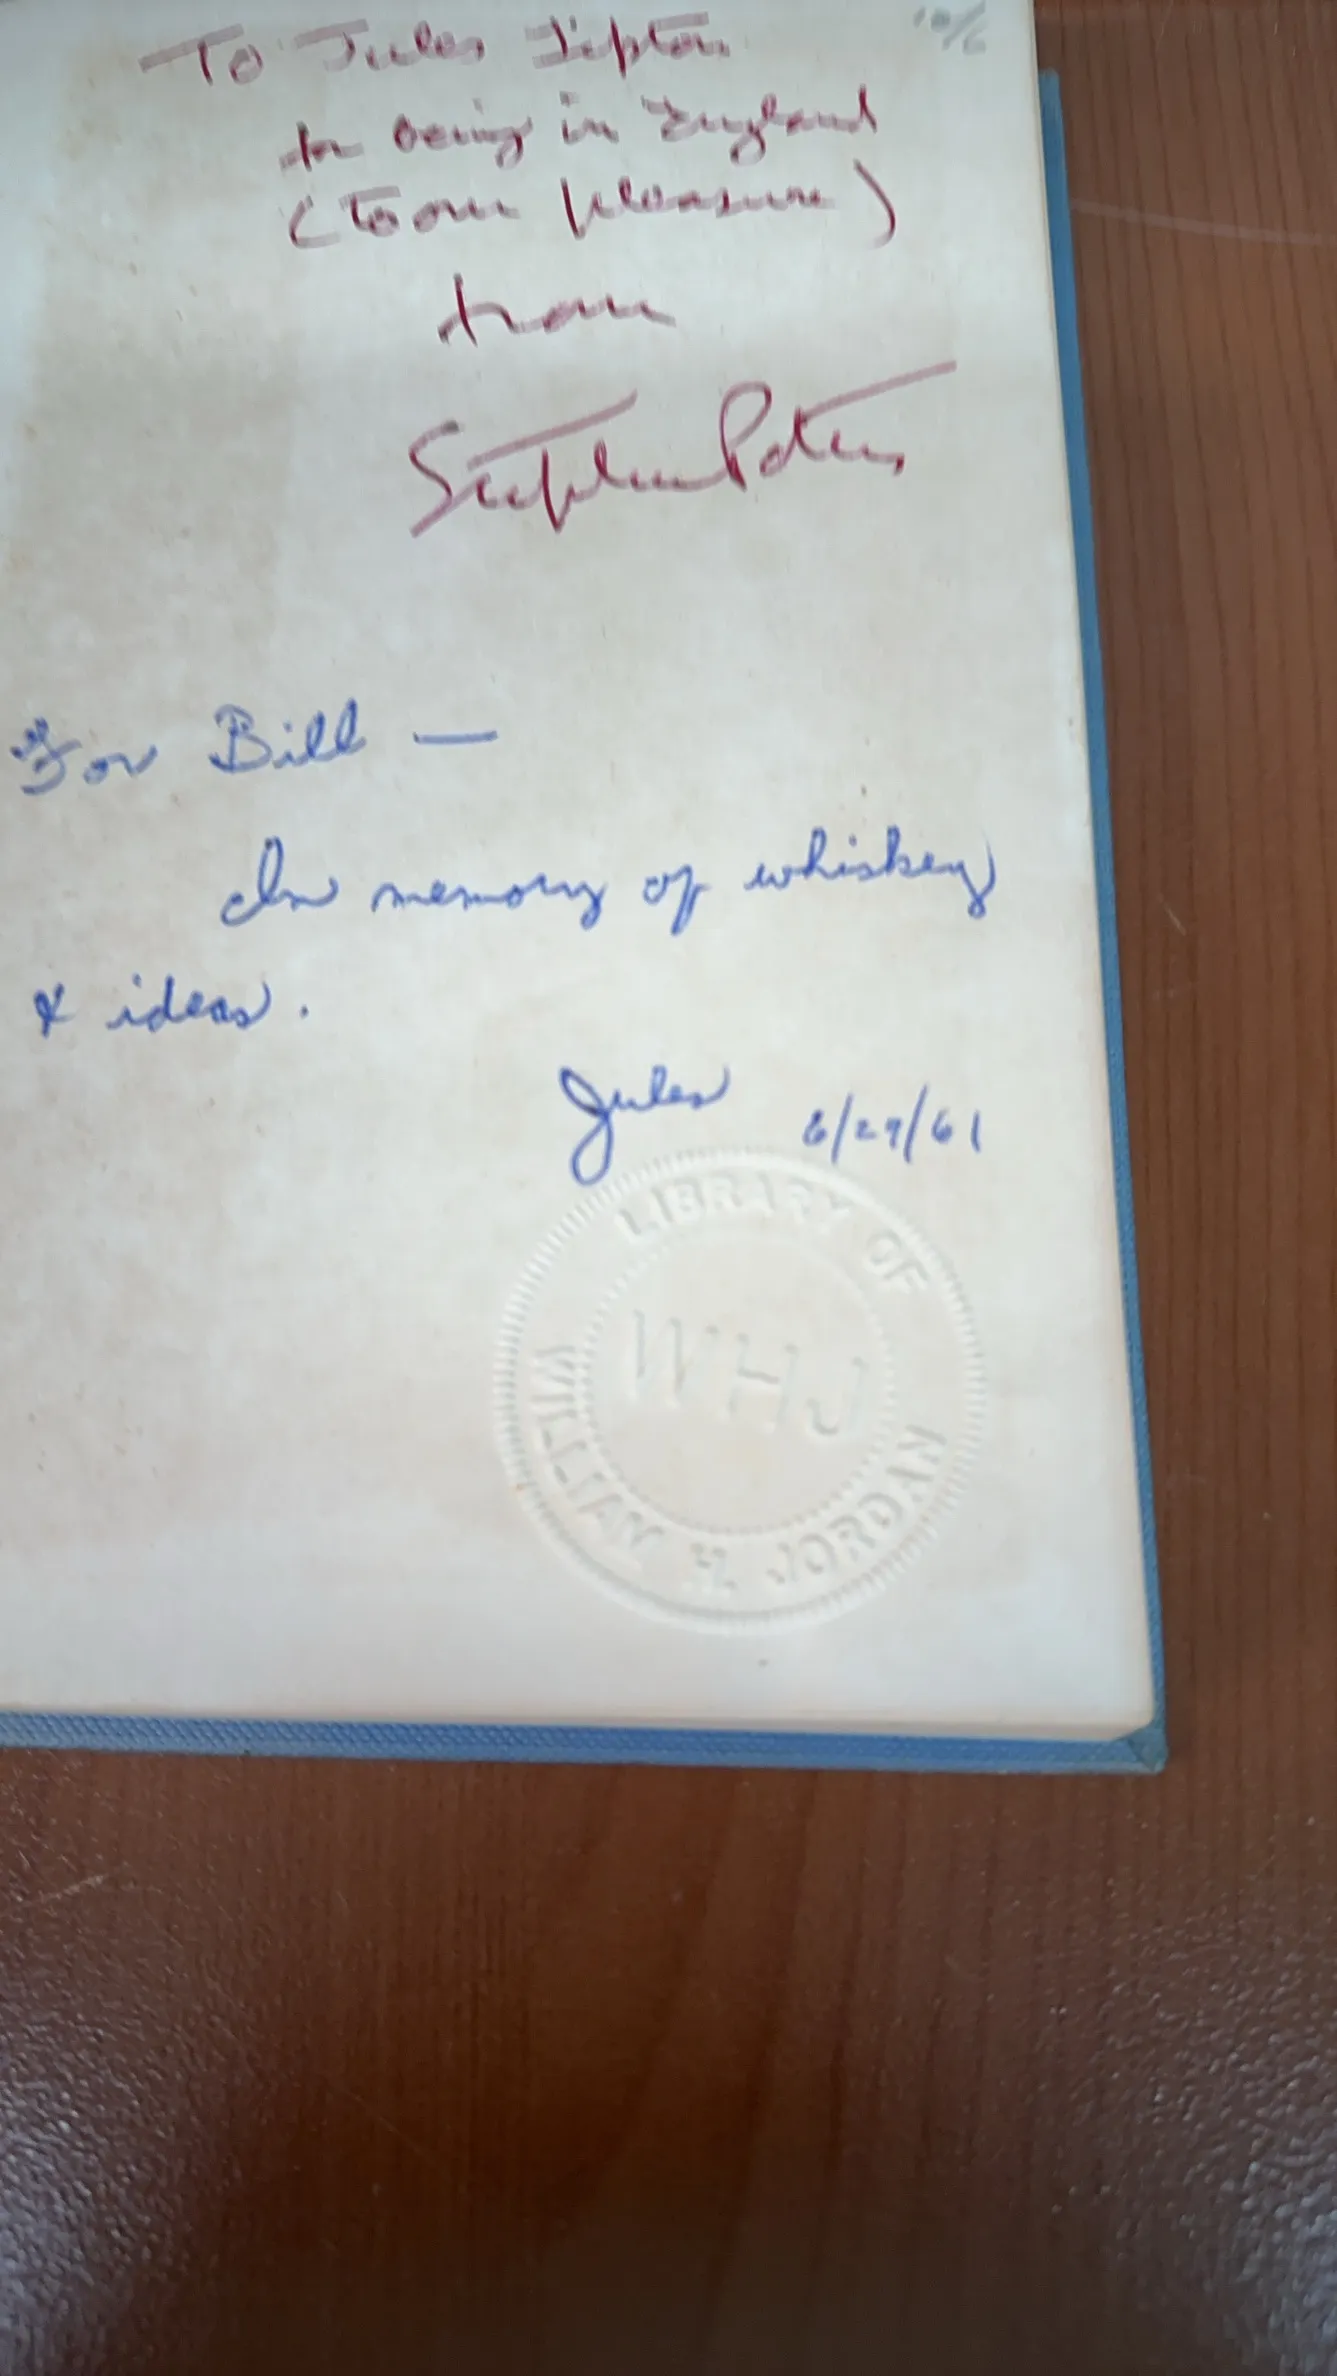 10/6
To Jules Lipton
for being in England
(to our pleasure)
from
Stephen Potter
For Bill —
In memory of whiskey
& ideas.
Jules 6/29/61
LIBRARY OF
WHJ
WILLIAM H. JORDAN